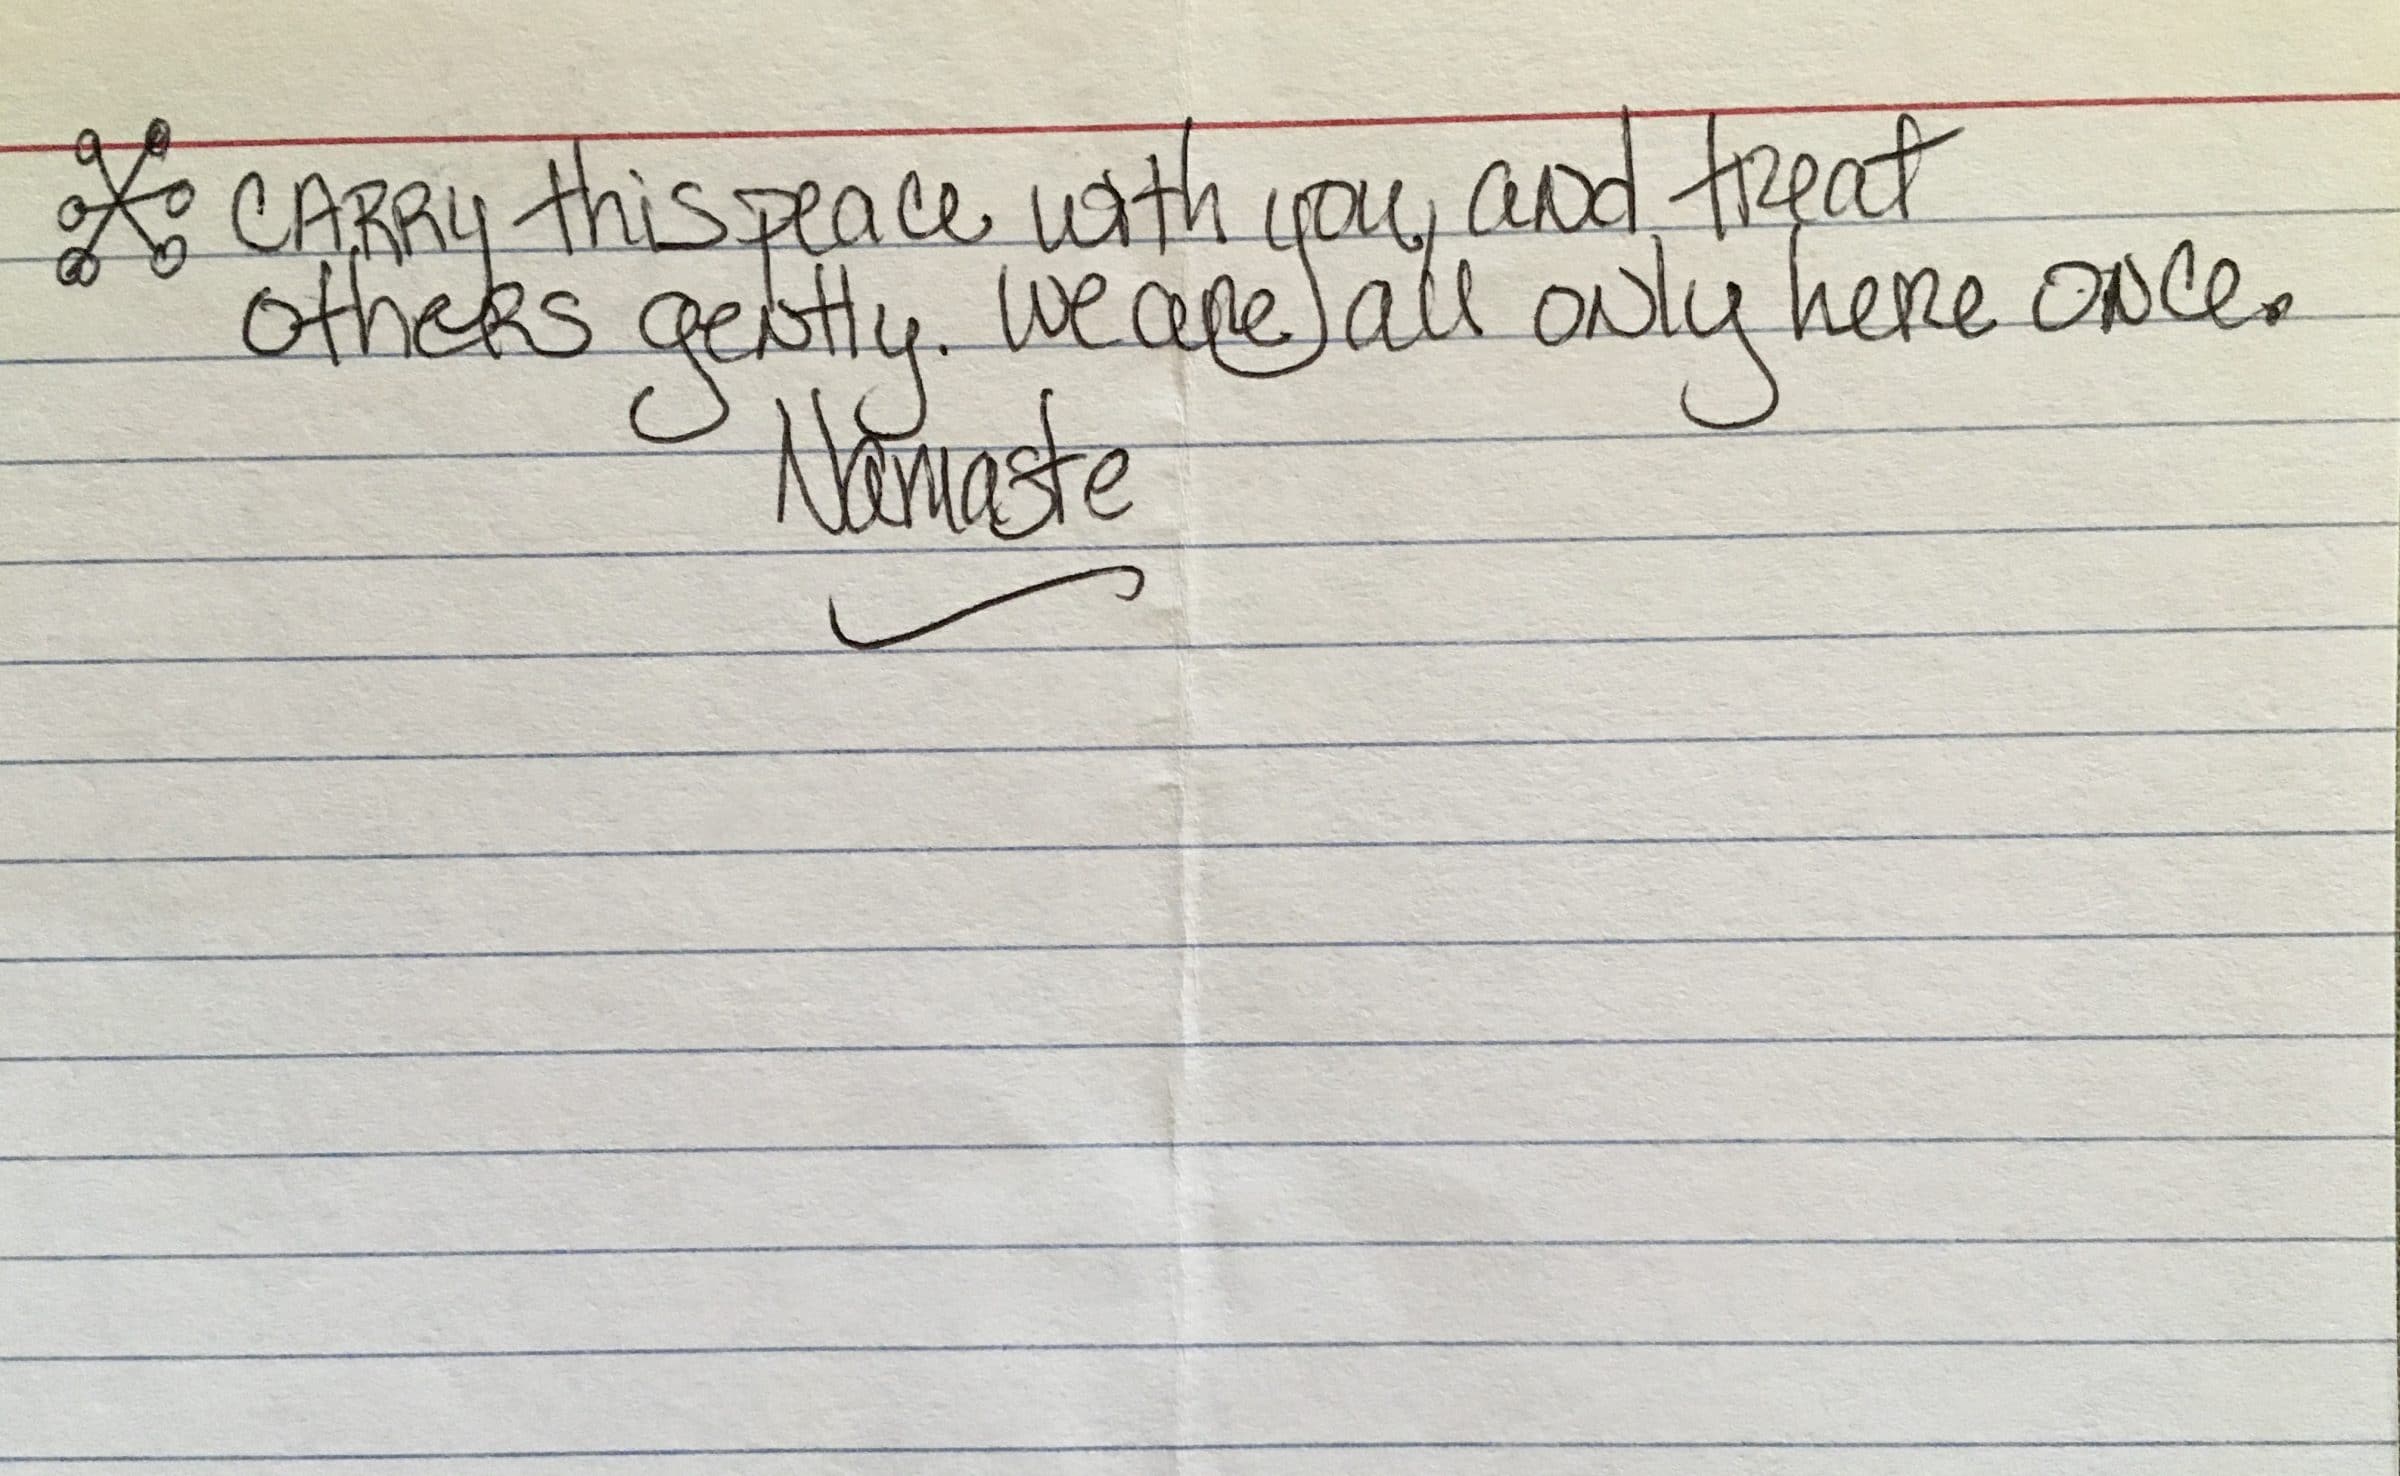 CARRy this peace with you, and treat
others gently. We are all only here once.
Namaste